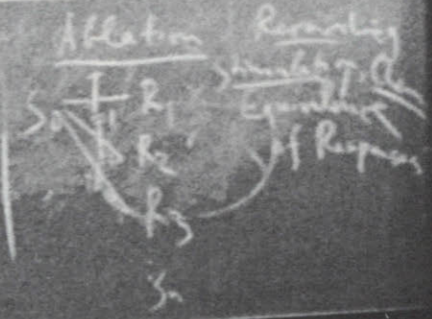 Ablation
Recording
Stimulation
S R₁
Equivalence
R₂
of Responses
R₃